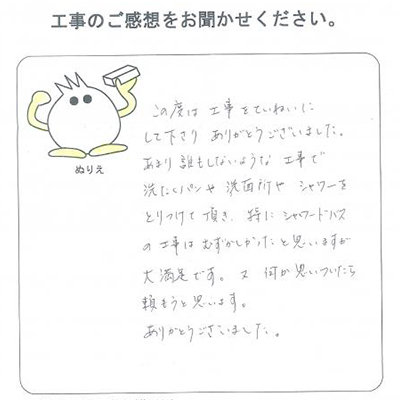 工事のご感想をお聞かせください。
ぬりえ
この度は工事をていねいに
して下さり ありがとうございました。
あまり誰もしないような工事で
洗たくパンや洗面所や シャワーを
とりつけて頂き、特に シャワードバス
の工事はむずかしかったと思いますが
大満足です。又 何か思いついたら
頼もうと思います。
ありがとうございました。